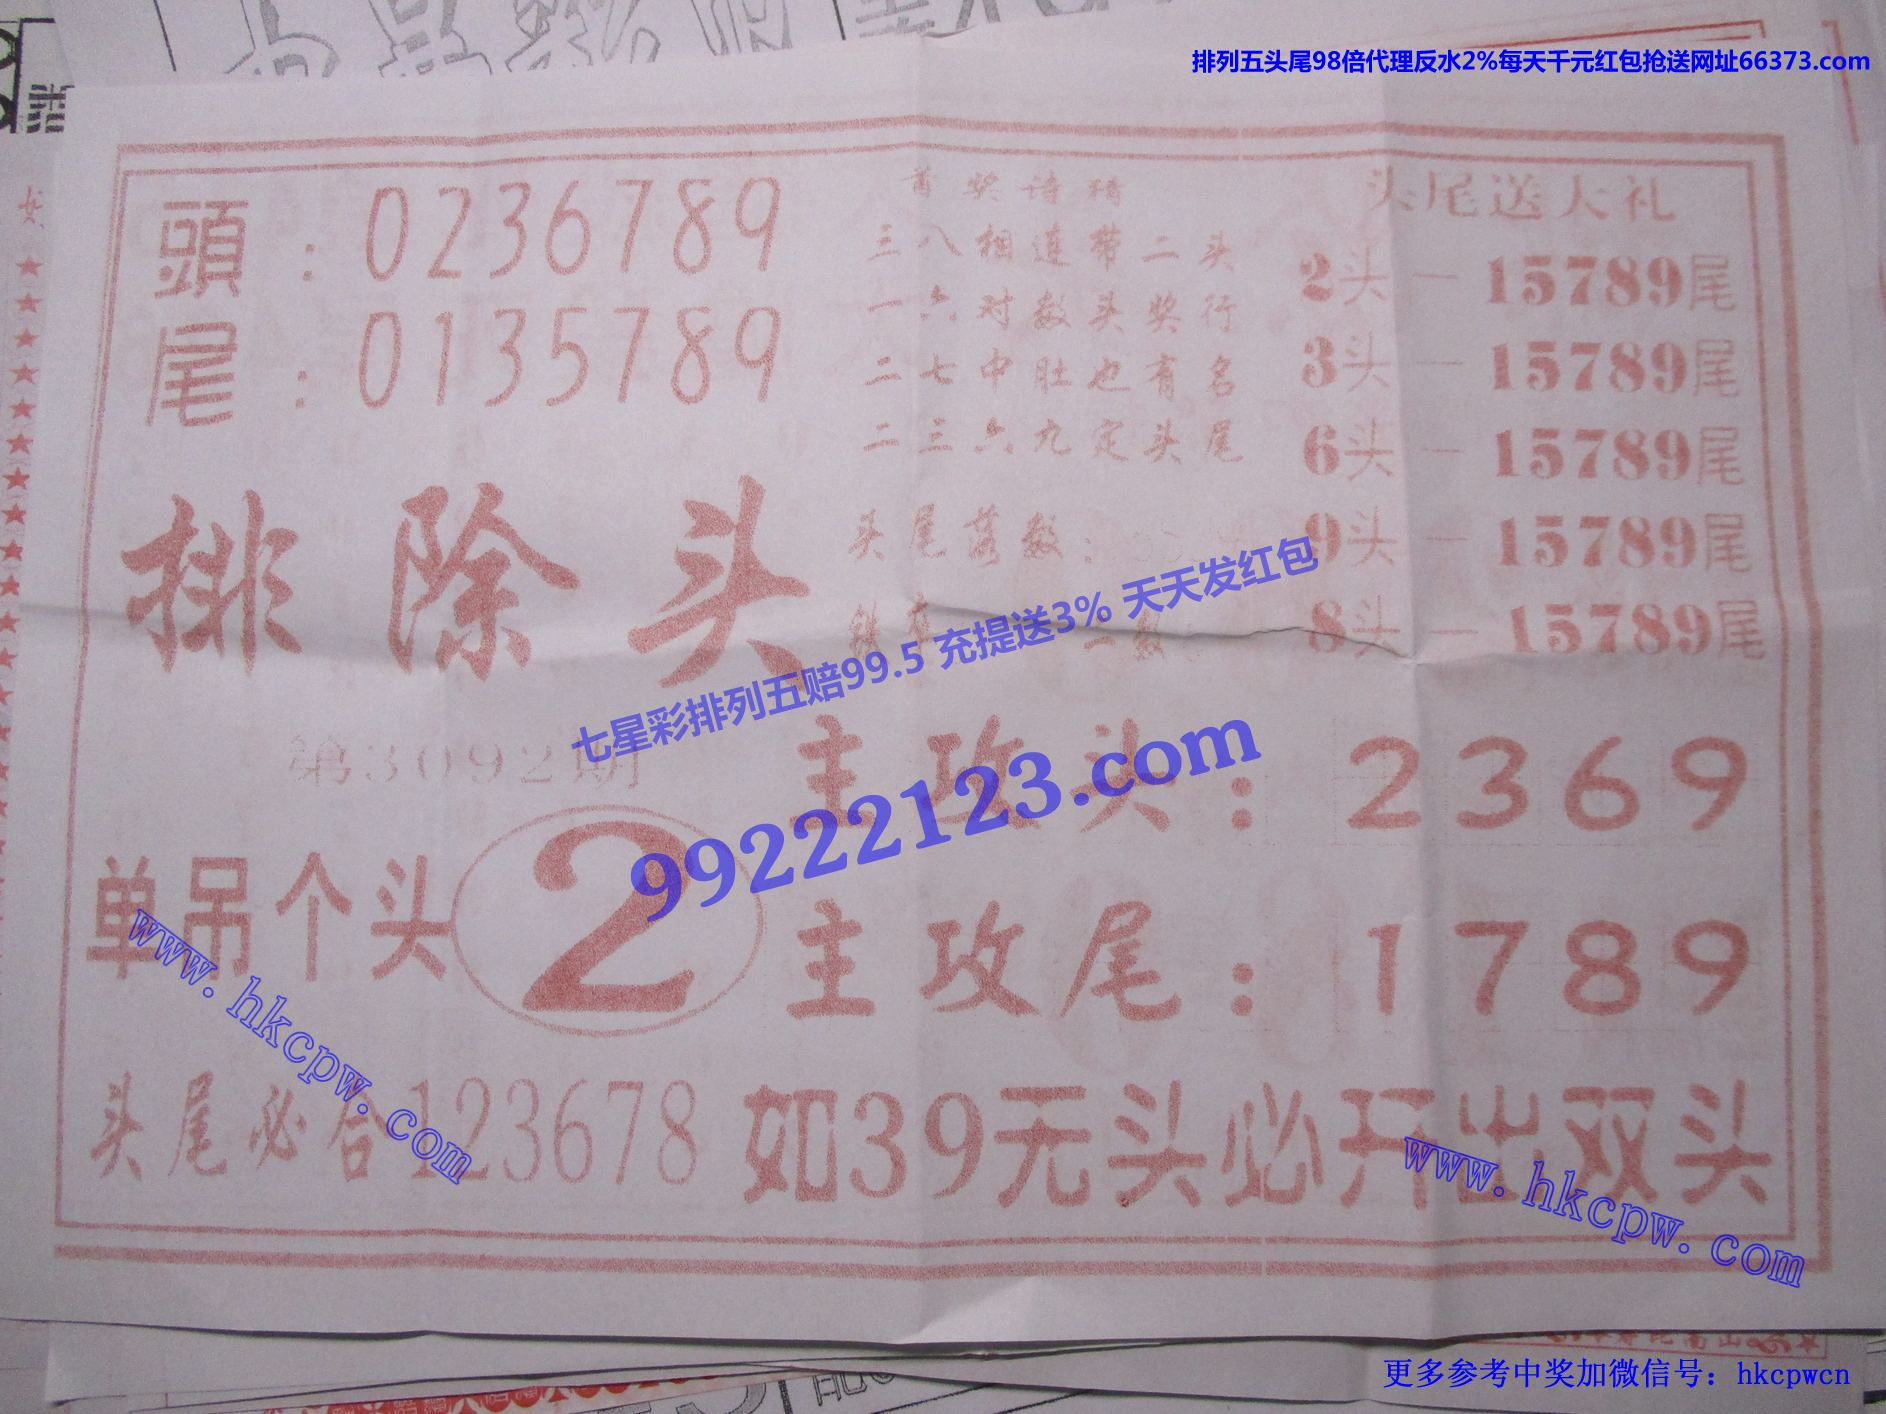 排列五头尾98倍代理反水2%每天千元红包抢送网址66373.com
頭:0236789
尾:0135789
首奖诗猜
三八相连带二头
一六对数头奖行
二七中肚也有名
二三六九定头尾
头尾落数:
头尾送大礼
2头一15789尾
3头一15789尾
6头一15789尾
9头一15789尾
8头一15789尾
排除头
七星彩排列五赔99.5 充提送3% 天天发红包
99222123.com
第3092期
主攻头:2369
单吊个头2
主攻尾:1789
www.hkcpw.com
头尾必合123678
如39无头必开出双头
www.hkcpw.com
更多参考中奖加微信号：hkcpwcn